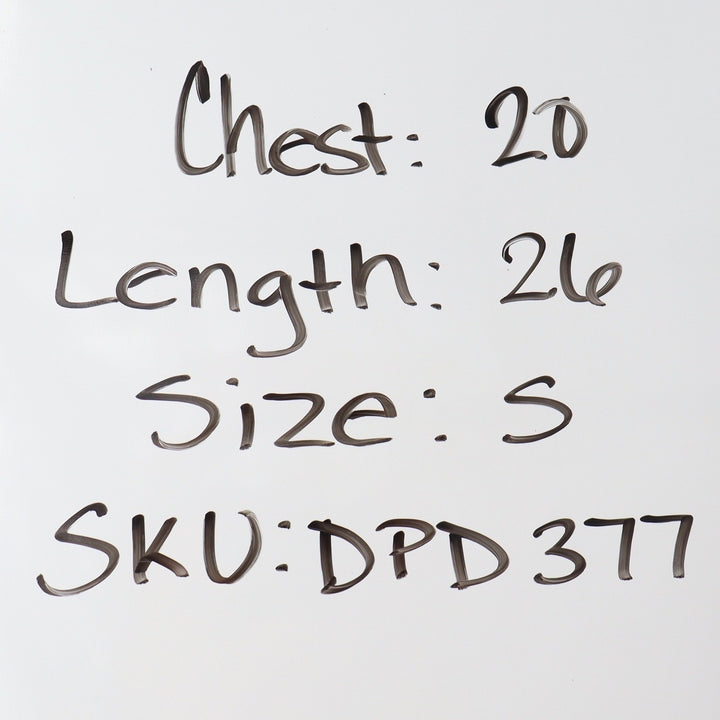 Chest: 20
Length: 26
Size: S
SKU: DPD 377